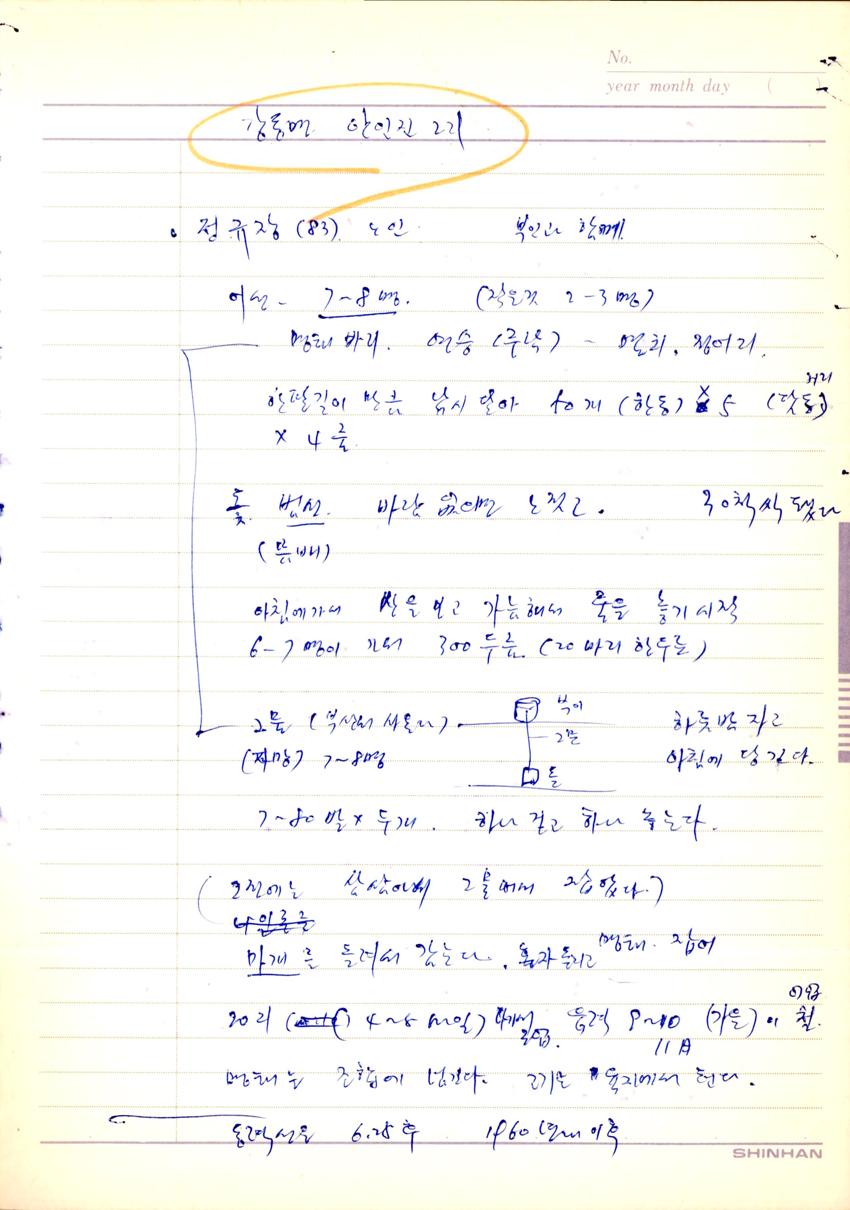 No.
year month day ( )
강동면 안인진 2리
• 정규장 (83) 노인 부인과 함께.
어선 - 7~8명. (작은것 2-3명)
명태 바리. 연승 (주낙) - 멸치, 정어리.
한팔길이 만큼 낚시 달아 50개 (한동) × 5 (닷동)
거리
× 4 클
돛. 범선. 바람 없으면 노젓고. 30척씩 됐다
(풍배)
아침에 가서 산을 보고 가늠해서 줄을 놓기 시작
6-7명이 가서 300두름. (20마리 한두름)
그물 (부산서 사온다) 북이 하룻밤 자고
그물
(자망) 7~8명 돌 아침에 당긴다.
7~80발 × 두개. 하나 걷고 하나 놓는다.
(오전에는 삼삼아서 그물떠서 잡았다.)
나일론줄
마개를 돌려서 감는다. 혼자 돌리고 명태 잡어
20리 (4~8마일) 나가서 음력 9~10 (가을)이 철.
11月
명태는 조합에 넘긴다. 고기는 육지에서 턴다.
동력선은 6.25후 1960년대 이후
SHINHAN